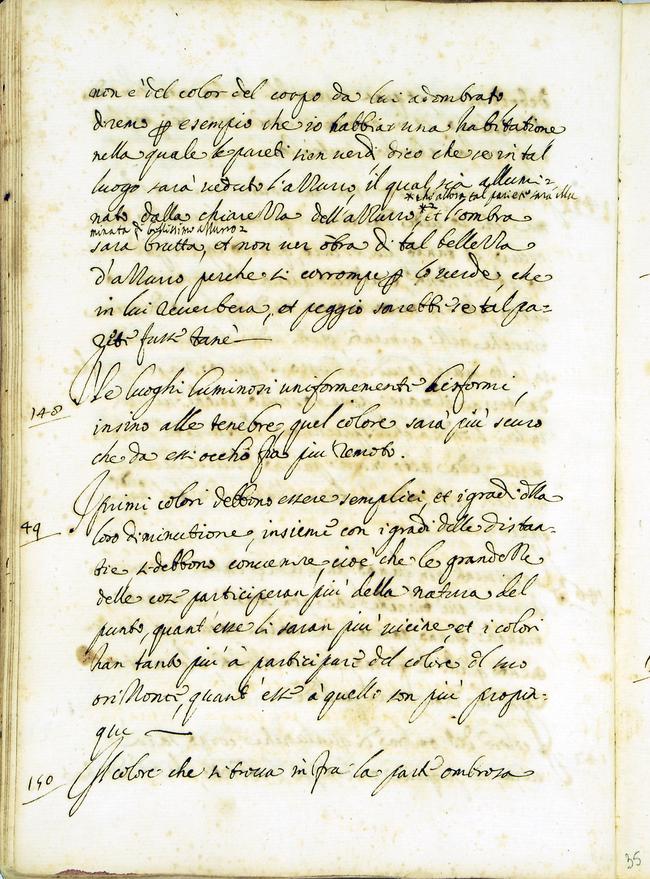 non è del color del corpo da lui adombrato
diremo per esempio che io habbia una habitatione
nella quale le pareti sien verdi dico che se in tal
luogo sarà veduto l'azzurro, il qual sia allumi-
*che allora tal pariete sarà illu
nato dalla chiarezza dell'azzurro *et l'ombra
minata di bellissimo azzurro
sarà brutta, et non ver ombra di tal bellezza
d'azzurro perche si corrompe per lo verde che
in lui reverbera, et peggio sarebbe se tal pa-
riete fusse tanè
148
Ne luoghi luminosi uniformemente difformi
insino alle tenebre quel colore sarà più scuro
che da esso occhio fia più remoto.
49
I primi colori debbono essere semplici, et i gradi della
loro diminutione, insieme con i gradi delle distan-
tie si debbono convenire, cioè che le grandezze
delle cose participeran più della natura del
punto, quant'esse li saran più vicine, et i colori
han tanto più à participare del colore del suo
orizzonte, quant'esse à quello son più propin-
que
150
Il colore che si trova infra la parte ombrosa
35